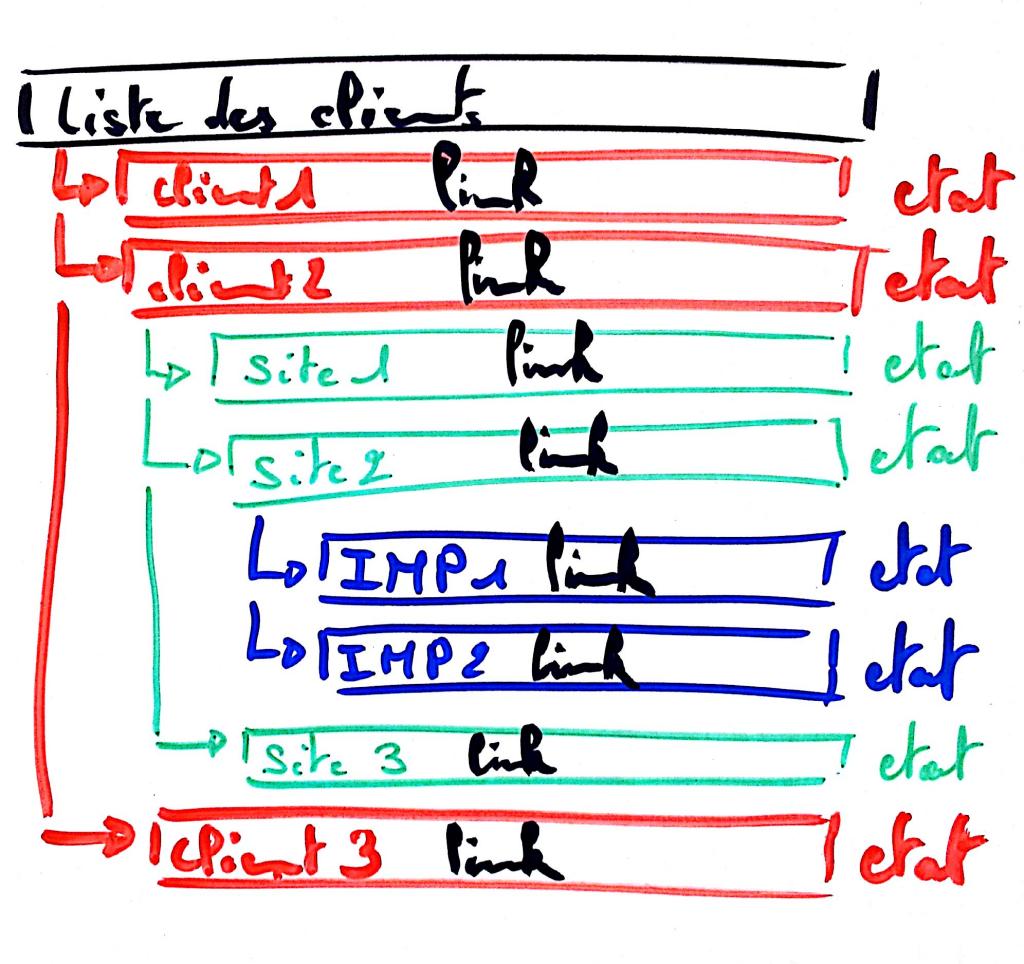 Liste des clients
client 1 link etat
client 2 link etat
Site 1 link etat
Site 2 link etat
IMP 1 link etat
IMP 2 link etat
Site 3 link etat
client 3 link etat